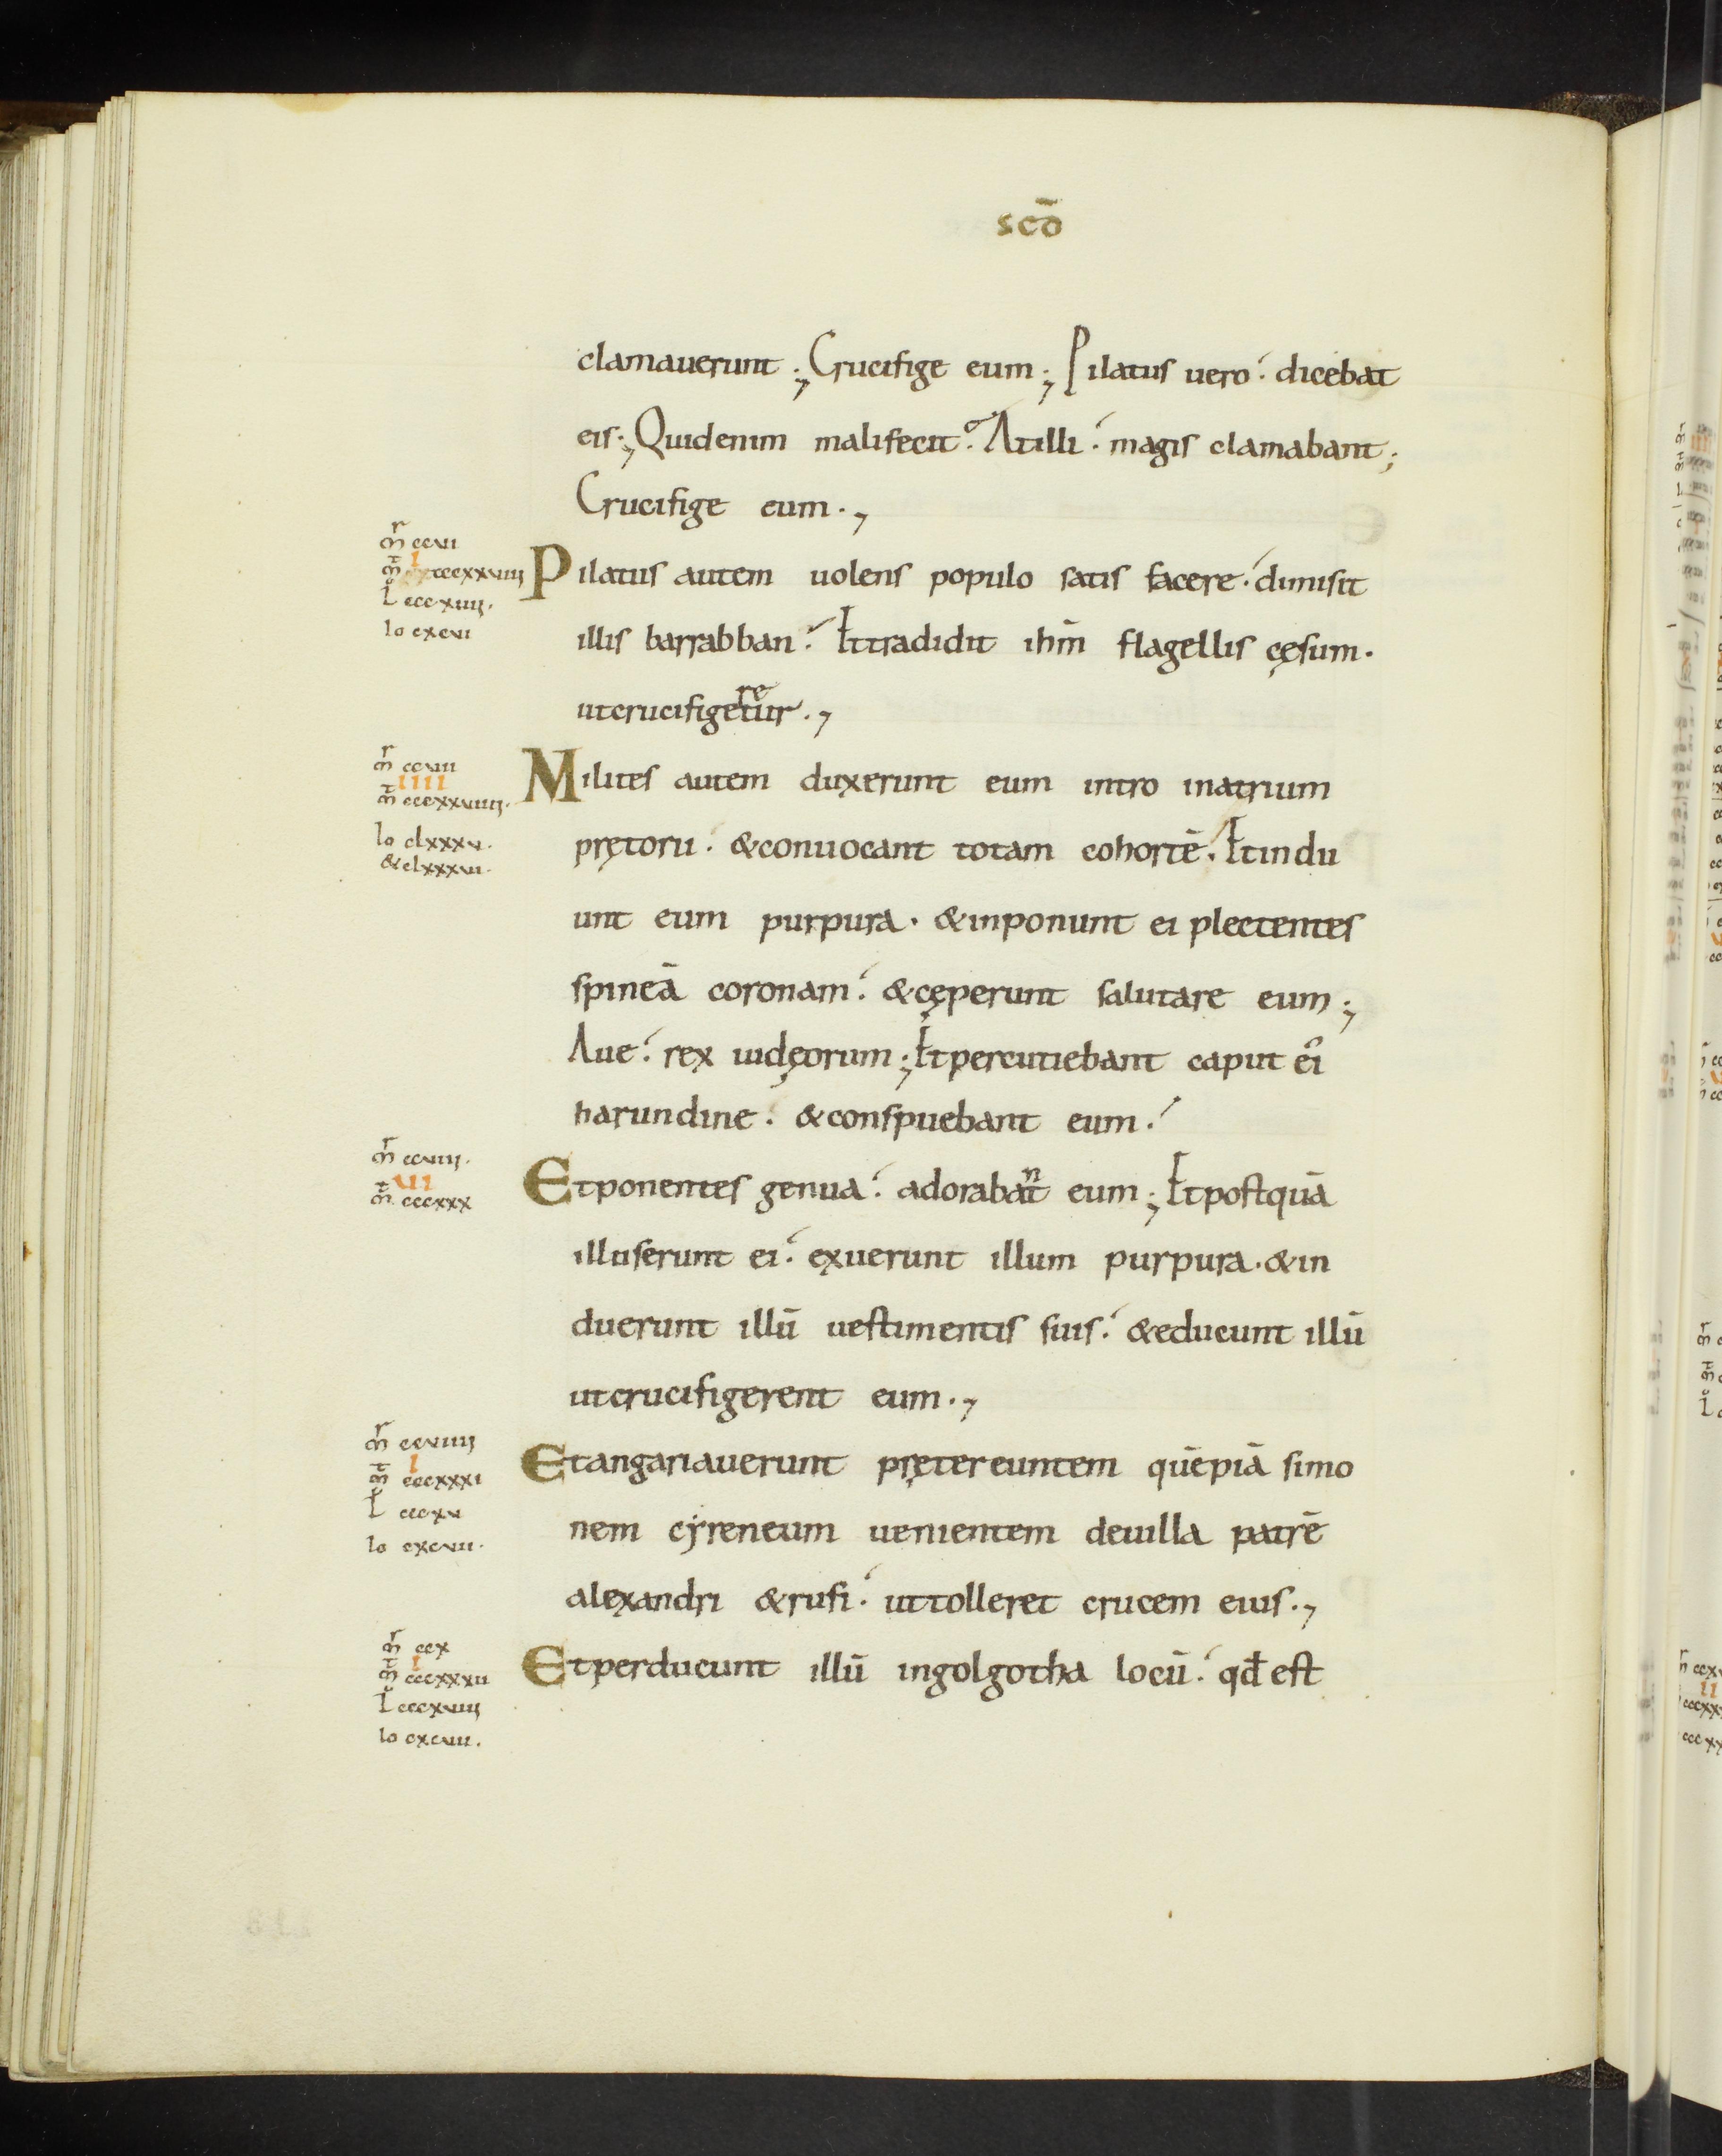 scō
clamauerunt; Crucifige eum; Pilatus uero. dicebat
eis; Quidenim malifecit. Atilli. magis clamabant;
Crucifige eum.,
mr ccvii
i
mt cccxxviiii
l cccxiiii.
io cxcvi
Pilatus autem uolens populo satis facere. dimisit
illis barrabban. Ettradidit ihm̄ flagellis cęsum.
utcrucifigeretur.,
mr ccviii
iiii
mt cccxxviiii.
io clxxxv.
& clxxxvii.
Milites autem duxerunt eum intro inatrium
prętorii. &conuocant totam cohortē. Etindu
unt eum purpura. &inponunt ei plectentes
spineā coronam. &cęperunt salutare eum;
Aue. rex iudęorum; Etpercutiebant caput ei᾿
harundine. &conspuebant eum.
mr ccviiii.
vii
mt cccxxx
Etponentes genua. adorabant eum; Etpostquā
illuserunt ei. exuerunt illum purpura. &in
duerunt illū uestimentis suis. &educunt illū
utcrucifigerent eum.,
mr ccviiii
i
mt cccxxxi
l cccxv
io cxcvii.
Etangariauerunt prętereuntem quēpiā simo
nem cẏreneum uenientem deuilla patrē
alexandri &rufi. uttolleret crucem eius.,
mr ccx
i
mt cccxxxii
l cccxviii
io cxcviii.
Etperducunt illū ingolgotha locū. qđ est